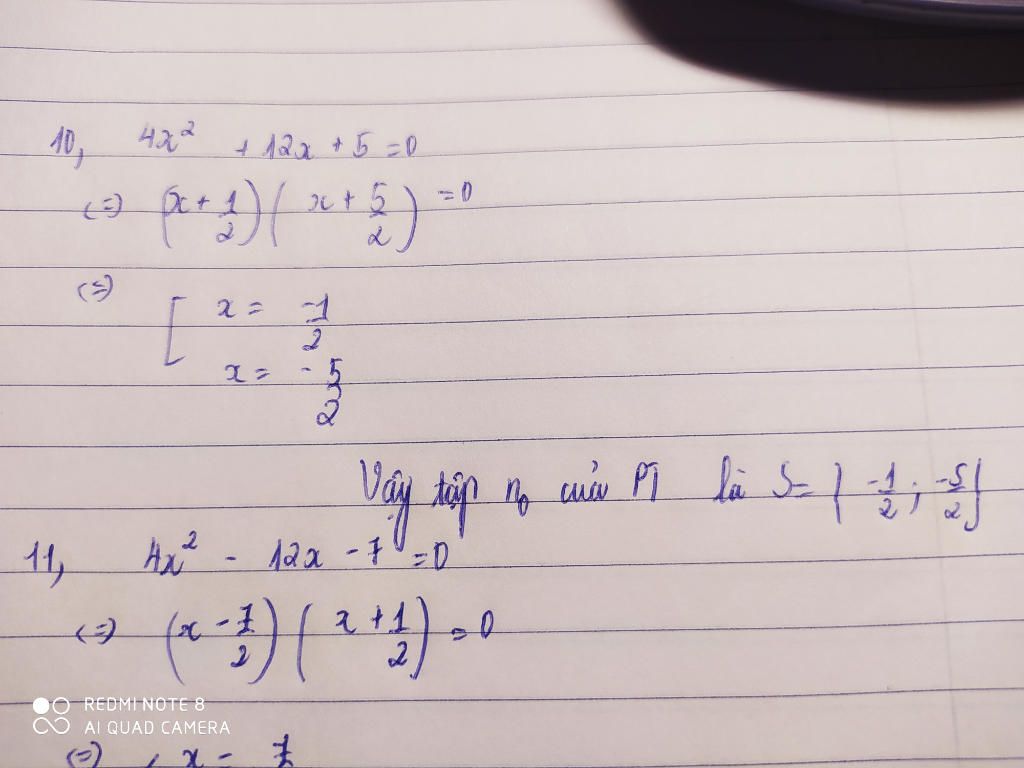 10, 4x² + 12x + 5 = 0
(=) (x + 1/2)(x + 5/2) = 0
(=) [ x = -1/2
x = -5/2
Vậy tập n₀ của PT là S = { -1/2 ; -5/2 }
11, 4x² - 12x - 7 = 0
(=) (x - 7/2)(x + 1/2) = 0
(=) x = 7
REDMI NOTE 8
AI QUAD CAMERA